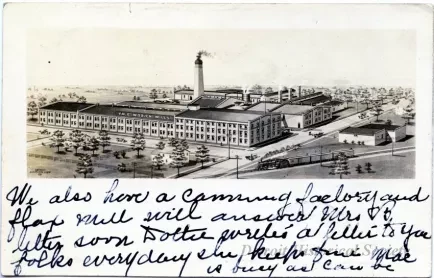 We also have a canning factory and
flax mill will answer Mrs
letter soon Dottie writes a letter to you
folks everyday she keep me Mae
is busy as can be
Detroit Historical Society